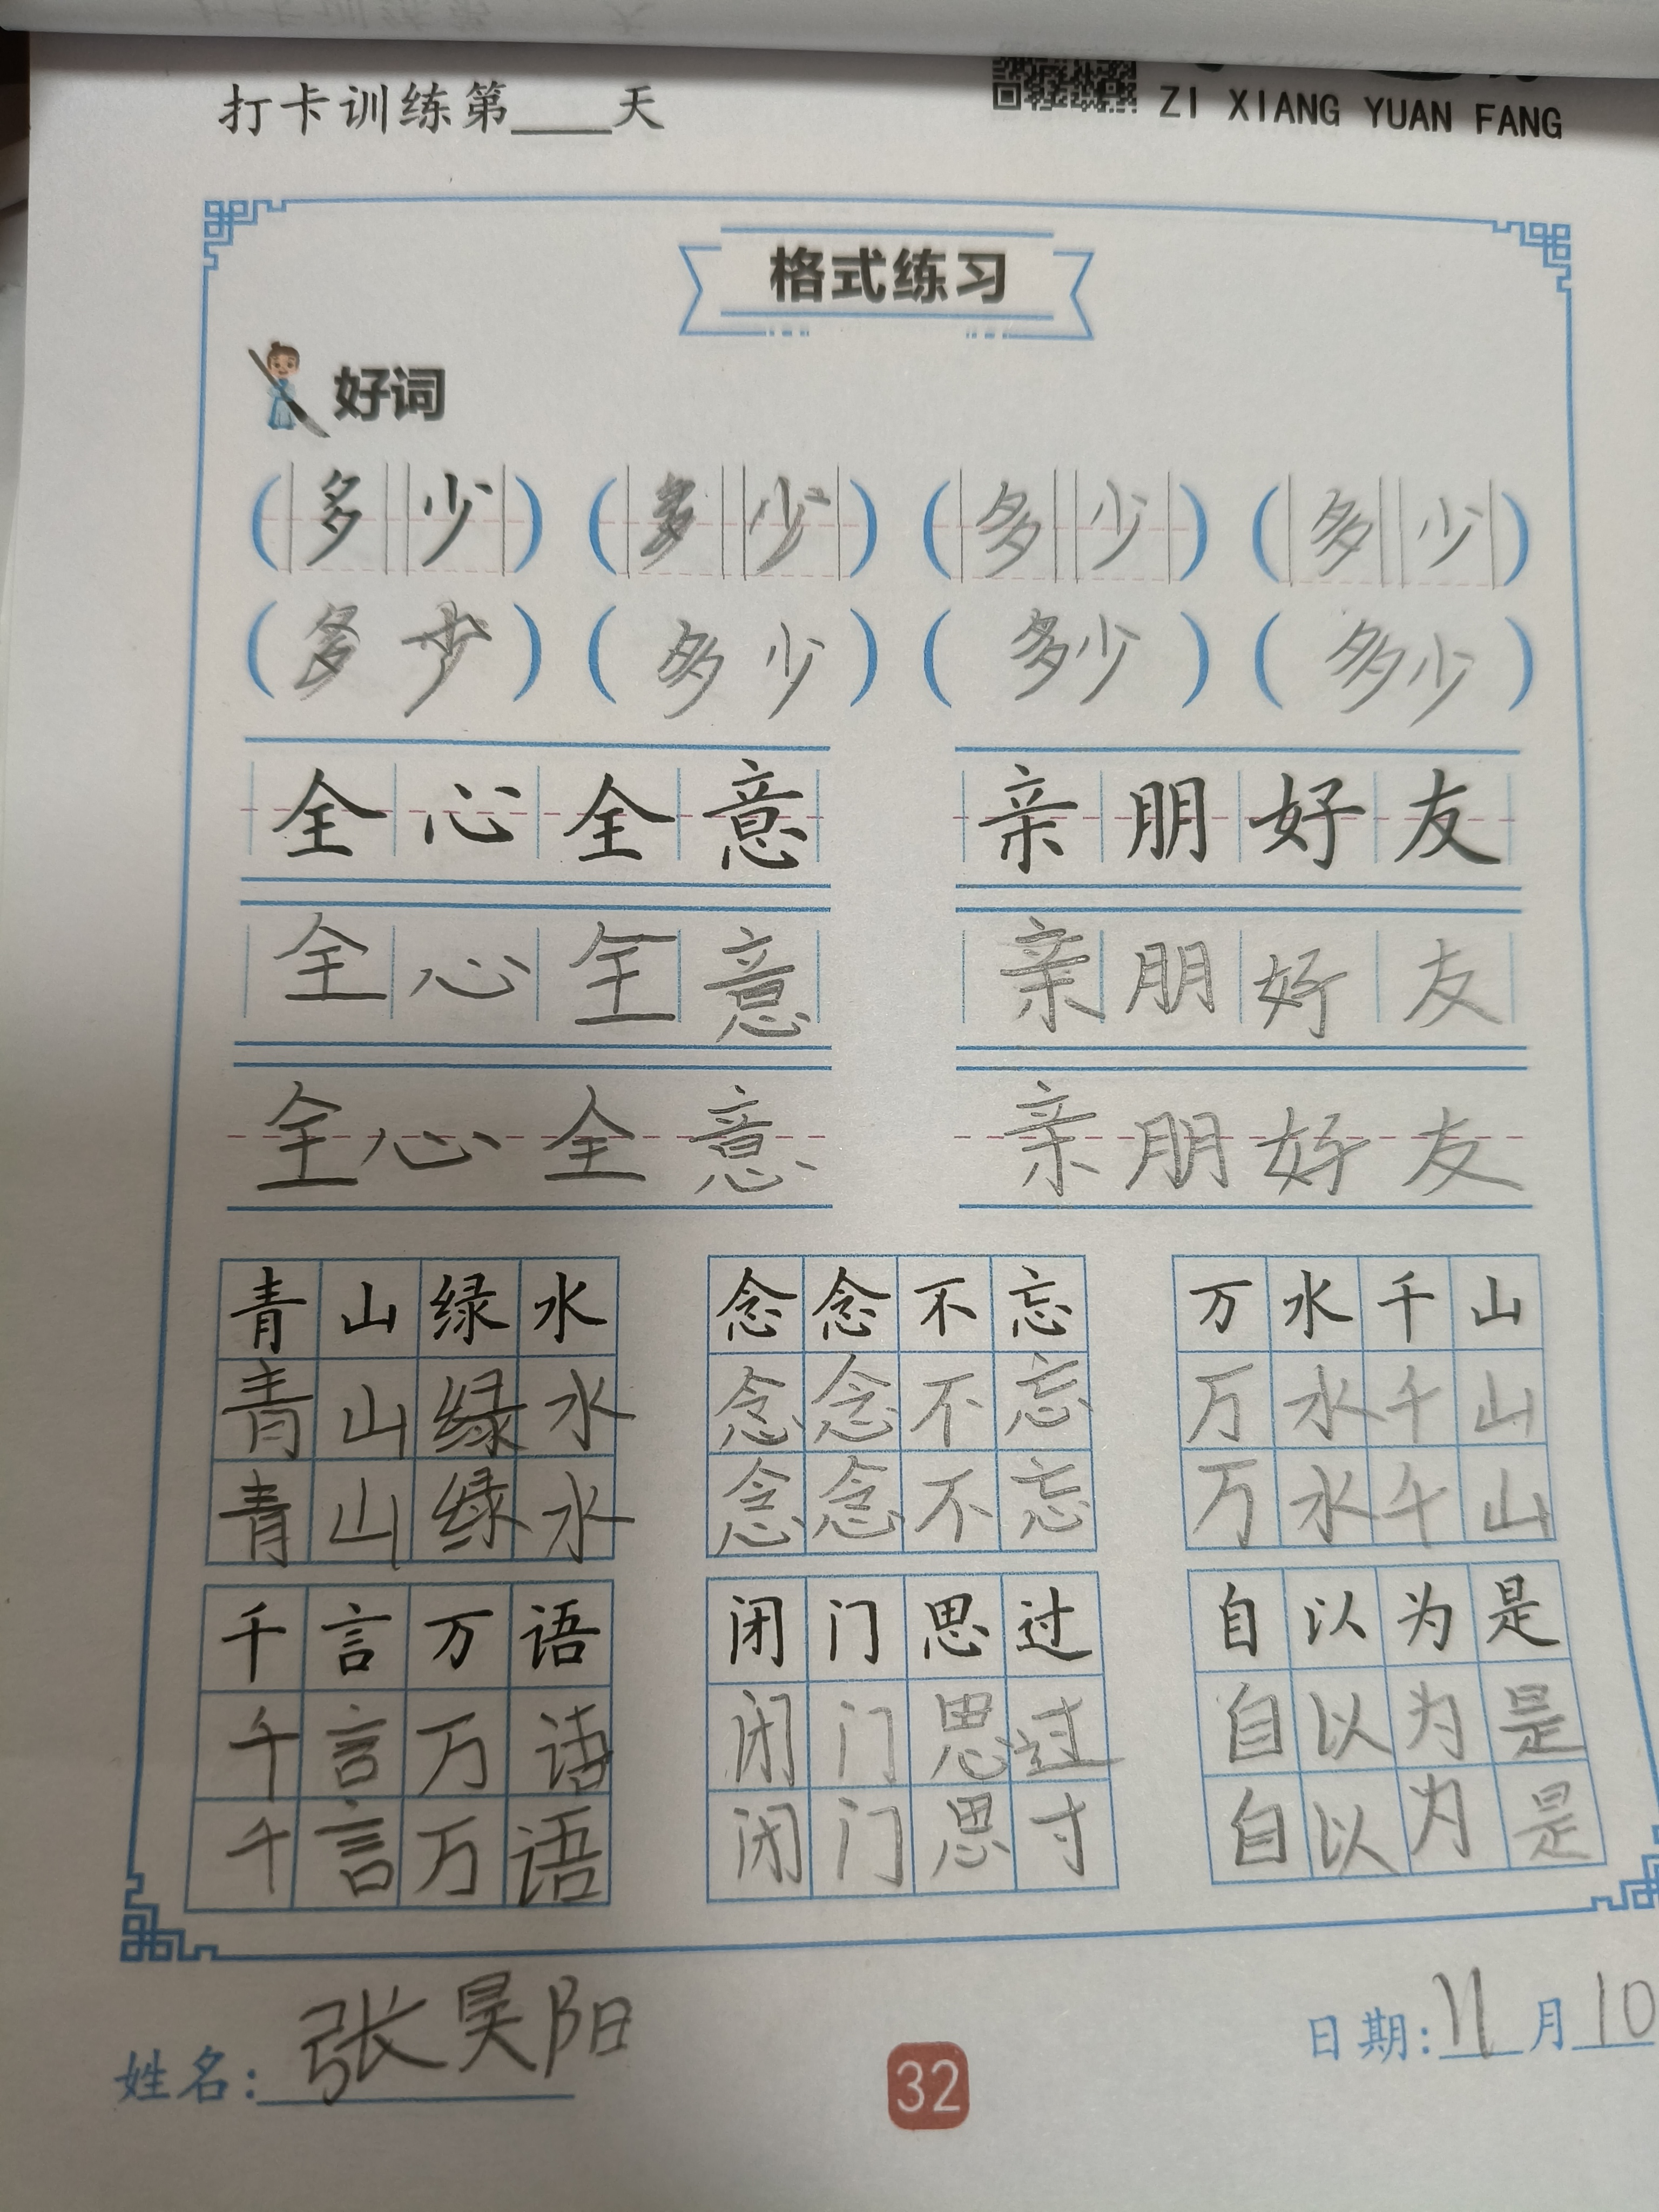 打卡训练第____天
ZI XIANG YUAN FANG
格式练习
好词
(多少) (多少) (多少) (多少)
(多少) (多少) (多少) (多少)
全心全意 亲朋好友
全心全意 亲朋好友
全心全意 亲朋好友
青山绿水 念念不忘 万水千山
青山绿水 念念不忘 万水千山
青山绿水 念念不忘 万水千山
千言万语 闭门思过 自以为是
千言万语 闭门思过 自以为是
千言万语 闭门思寸 自以为是
姓名:张昊阳
32
日期:11月10